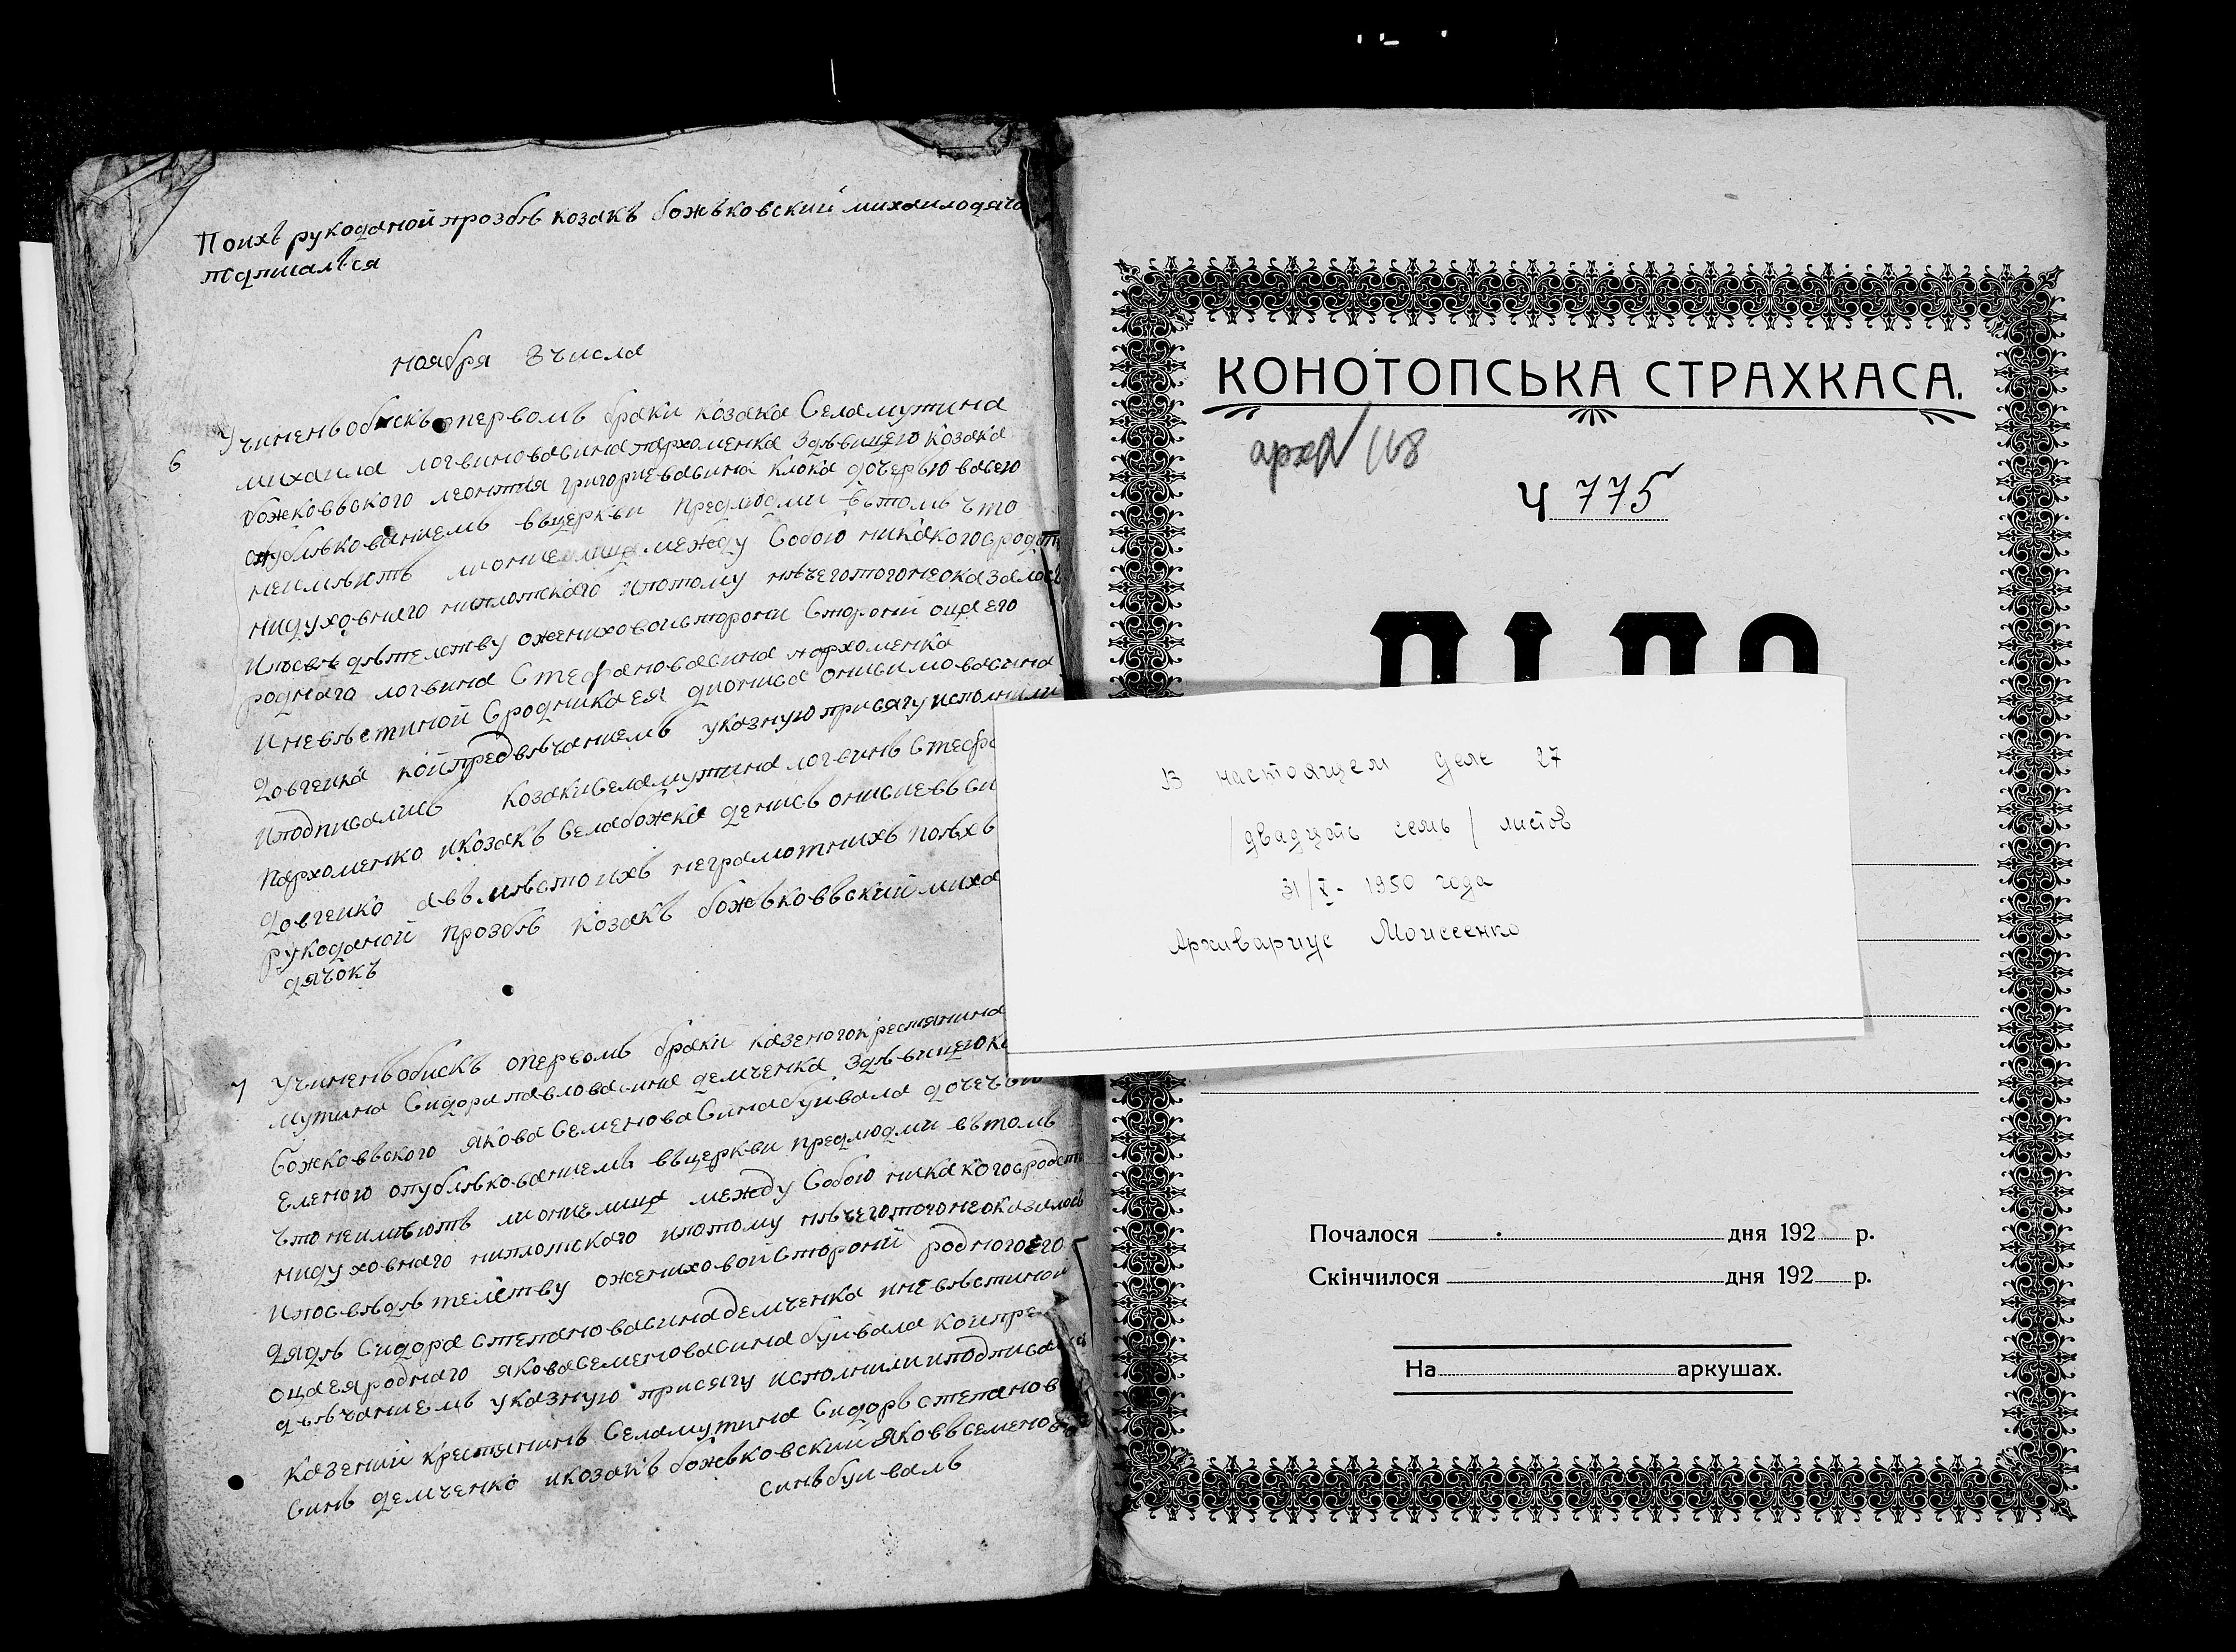 Поихъ рукоданой прозбѣ козакъ божъковский михаилодячо
подписалъся
ноября 8 числа
6 Учиненъ обискъ опервомъ браки козака Села мутина
михаила логвинова сина пархоменка здѣвицею козака
божковъского леонтия григориева сина клока дочерью васею
опубликованиемъ въцеркви предлюдми вътомъ что
неимѣютъ ли оние лица между Собою никакого сродст
нидуховнаго ниплотскаго ипотому нѣчего того неоказалось
ипосвѣдѣтелству ожениховои сторони Сторони отца его
роднаго логвина Стефанова сина пархоменка
Иневѣстиной Сродника ея диониса онисимова сина
довгенка кой предвѣчаниемъ указную присягу исполнили
Иподписались козаки Села мутина логвинъ Стефа
пархоменко икозакъ Села божка денисъ онисиевъ си
довгенко авъмѣсто ихъ неграмотнихъ поѣхъ
рукоданой прозбѣ козакъ божъковъский миха
дячокъ
7 Учиненъ обискъ опервомъ браки казеного крестянина
мутина Сидора павлова сина демченка здѣвицею ко
божковъского якова Семенова Сина буивала дочерью
Еленою опубликованиемъ въцеркви предлюдми вътомъ
Что неимѣютъ ли оние лица между Собою никакого сродст
нидуховнаго ниплотскаго ипотому нѣчего того неоказалось
Ипосвѣдѣтелству ожениховой Сторони родного его
дядѣ Сидора степанова сина демченка иневѣстиной
отца ея роднаго якова Семенова сина буивала кой пре
двѣчаниемъ указную присягу исполнили иподписа
казений крестянинъ Села мутина Сидоръ степанов
Синъ демченко икозакъ божъковский яковъ семено
синъ буивалъ
КОНОТОПСЬКА СТРАХКАСА.
арх№ 168
Ч 775
В настоящем деле 27
/двадцать семь/ листов
31/V - 1950 года
Архивариус Моисеенко
Почалося дня 1925 р.
Скінчилося дня 192 р.
На аркушах.